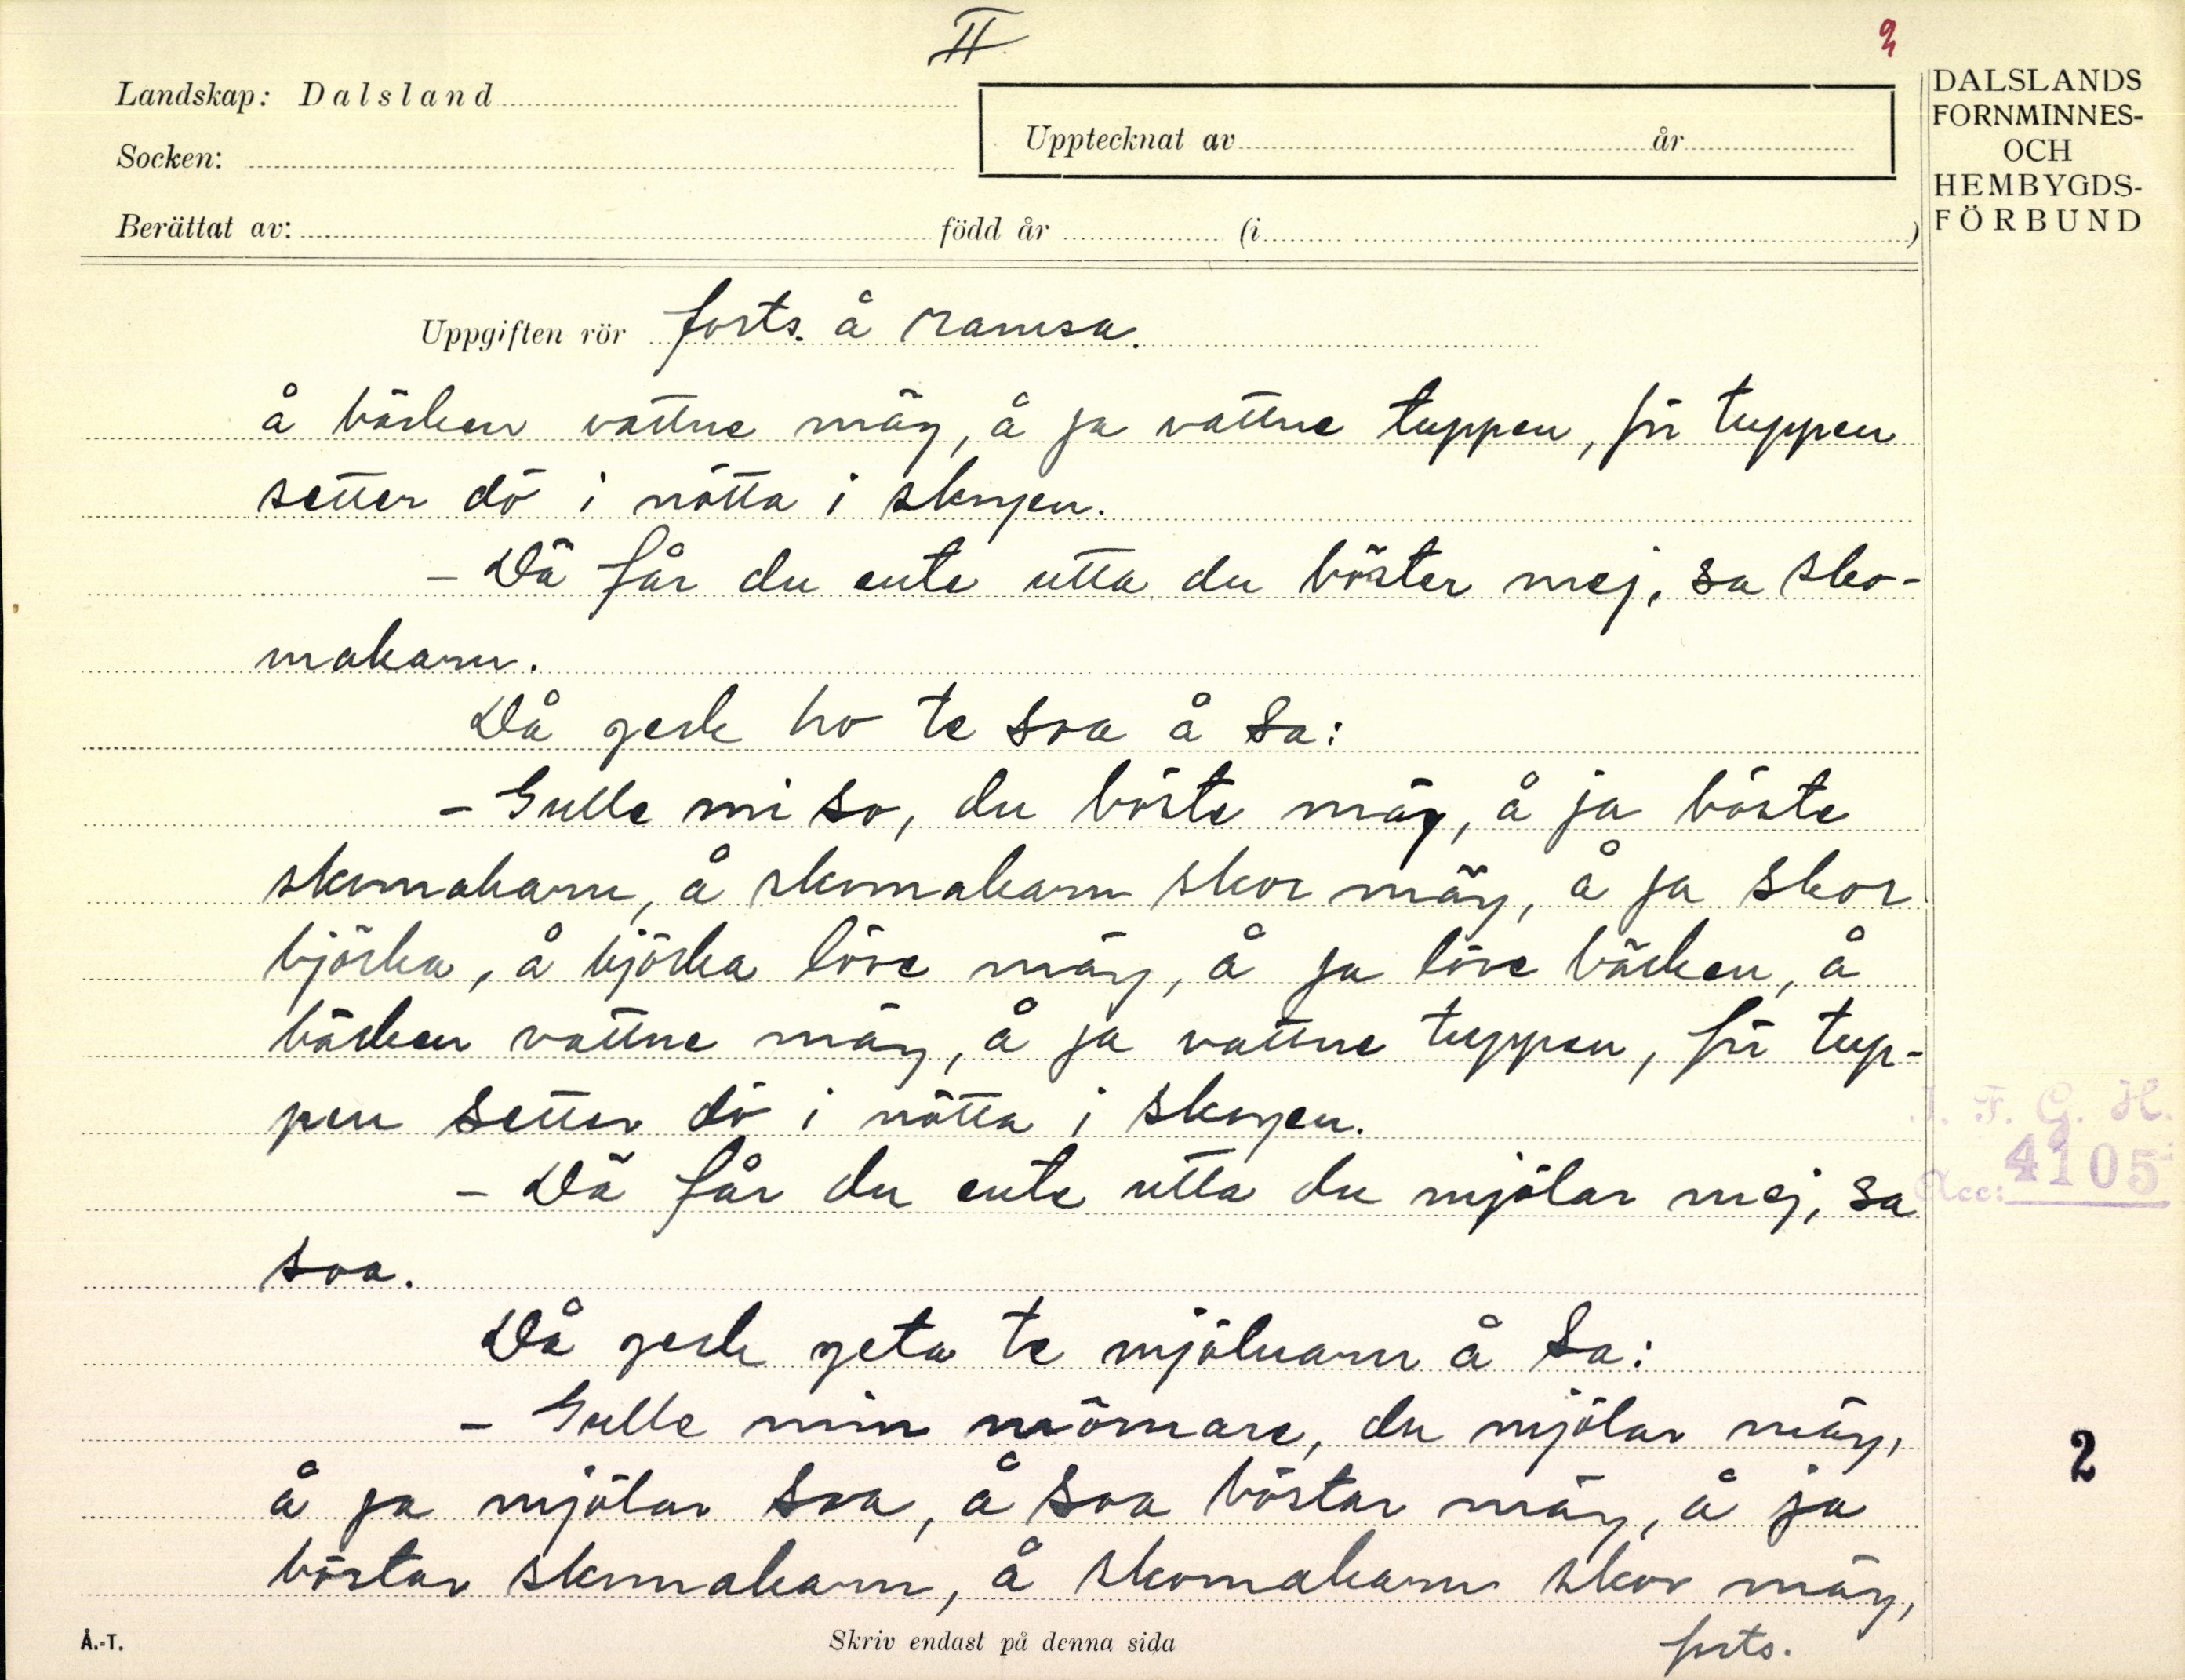 II
2
Landskap: Dalsland
Socken:
Berättat av: född år (i )
Upptecknat av år
DALSLANDS
FORNMINNES-
OCH
HEMBYGDS-
FÖRBUND
Uppgiften rör forts. å ramsa.
å bäcken vattne mäg, å ja vattne tuppen, för tuppen
setter dö i nötta i skogen.
– Dä får du ente utta du böster mej, sa sko-
makarn.
Då geck ho te soa å sa:
– Gulle mi so, du böste mäg, å ja böste
skomakarn, å skomakarn skor mäg, å ja skor
björka, å björka löve mäg, å ja löve bäcken, å
bäcken vattne mäg, å ja vattne tuppen, för tup-
pen setter dö i nötta i skogen.
– Dä får du ente utta du mjölar mej, sa
soa.
Då geck geta te mjölnarn å sa:
– Gulle min mömare, du mjölar mäg,
å ja mjölar soa, å soa böstar mäg, å ja
böstar skomakarn, å skomakarn skor mäg,
forts.
I. F. G. H.
Acc: 4105
2
Å.-T.
Skriv endast på denna sida